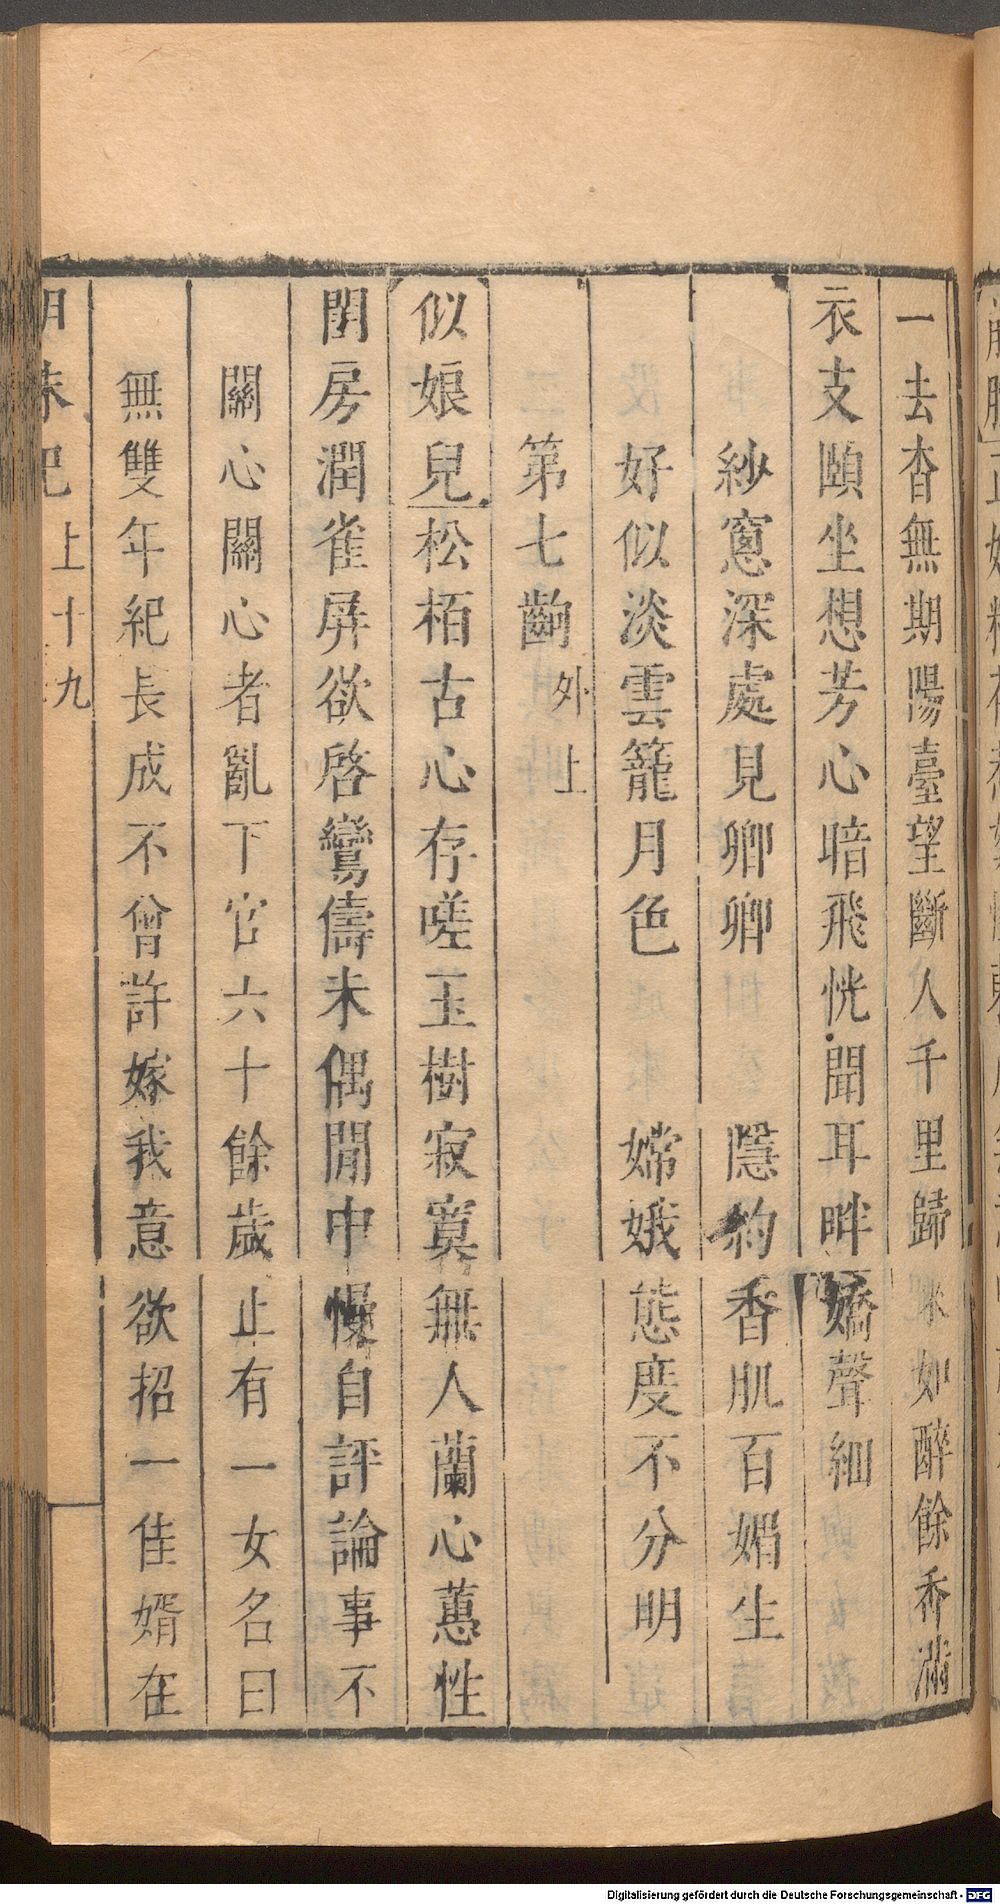 一去杳無期陽臺望斷人千里歸來如醉餘香滿
衣支頤坐想芳心暗飛恍聞耳畔嬌聲細
紗窻深處見卿卿 隱約香肌百媚生
好似淡雲籠月色 嫦娥態度不分明
第七齣 外上
似娘兒松栢古心存嗟玉樹寂寞無人蘭心蕙性
閨房潤雀屏欲啓鸞儔未偶閒中慢自評論事不
關心關心者亂下官六十餘歲止有一女名曰
無雙年紀長成不曾許嫁我意欲招一佳婿在
明珠記 上 十九
Digitalisierung gefördert durch die Deutsche Forschungsgemeinschaft - DFG